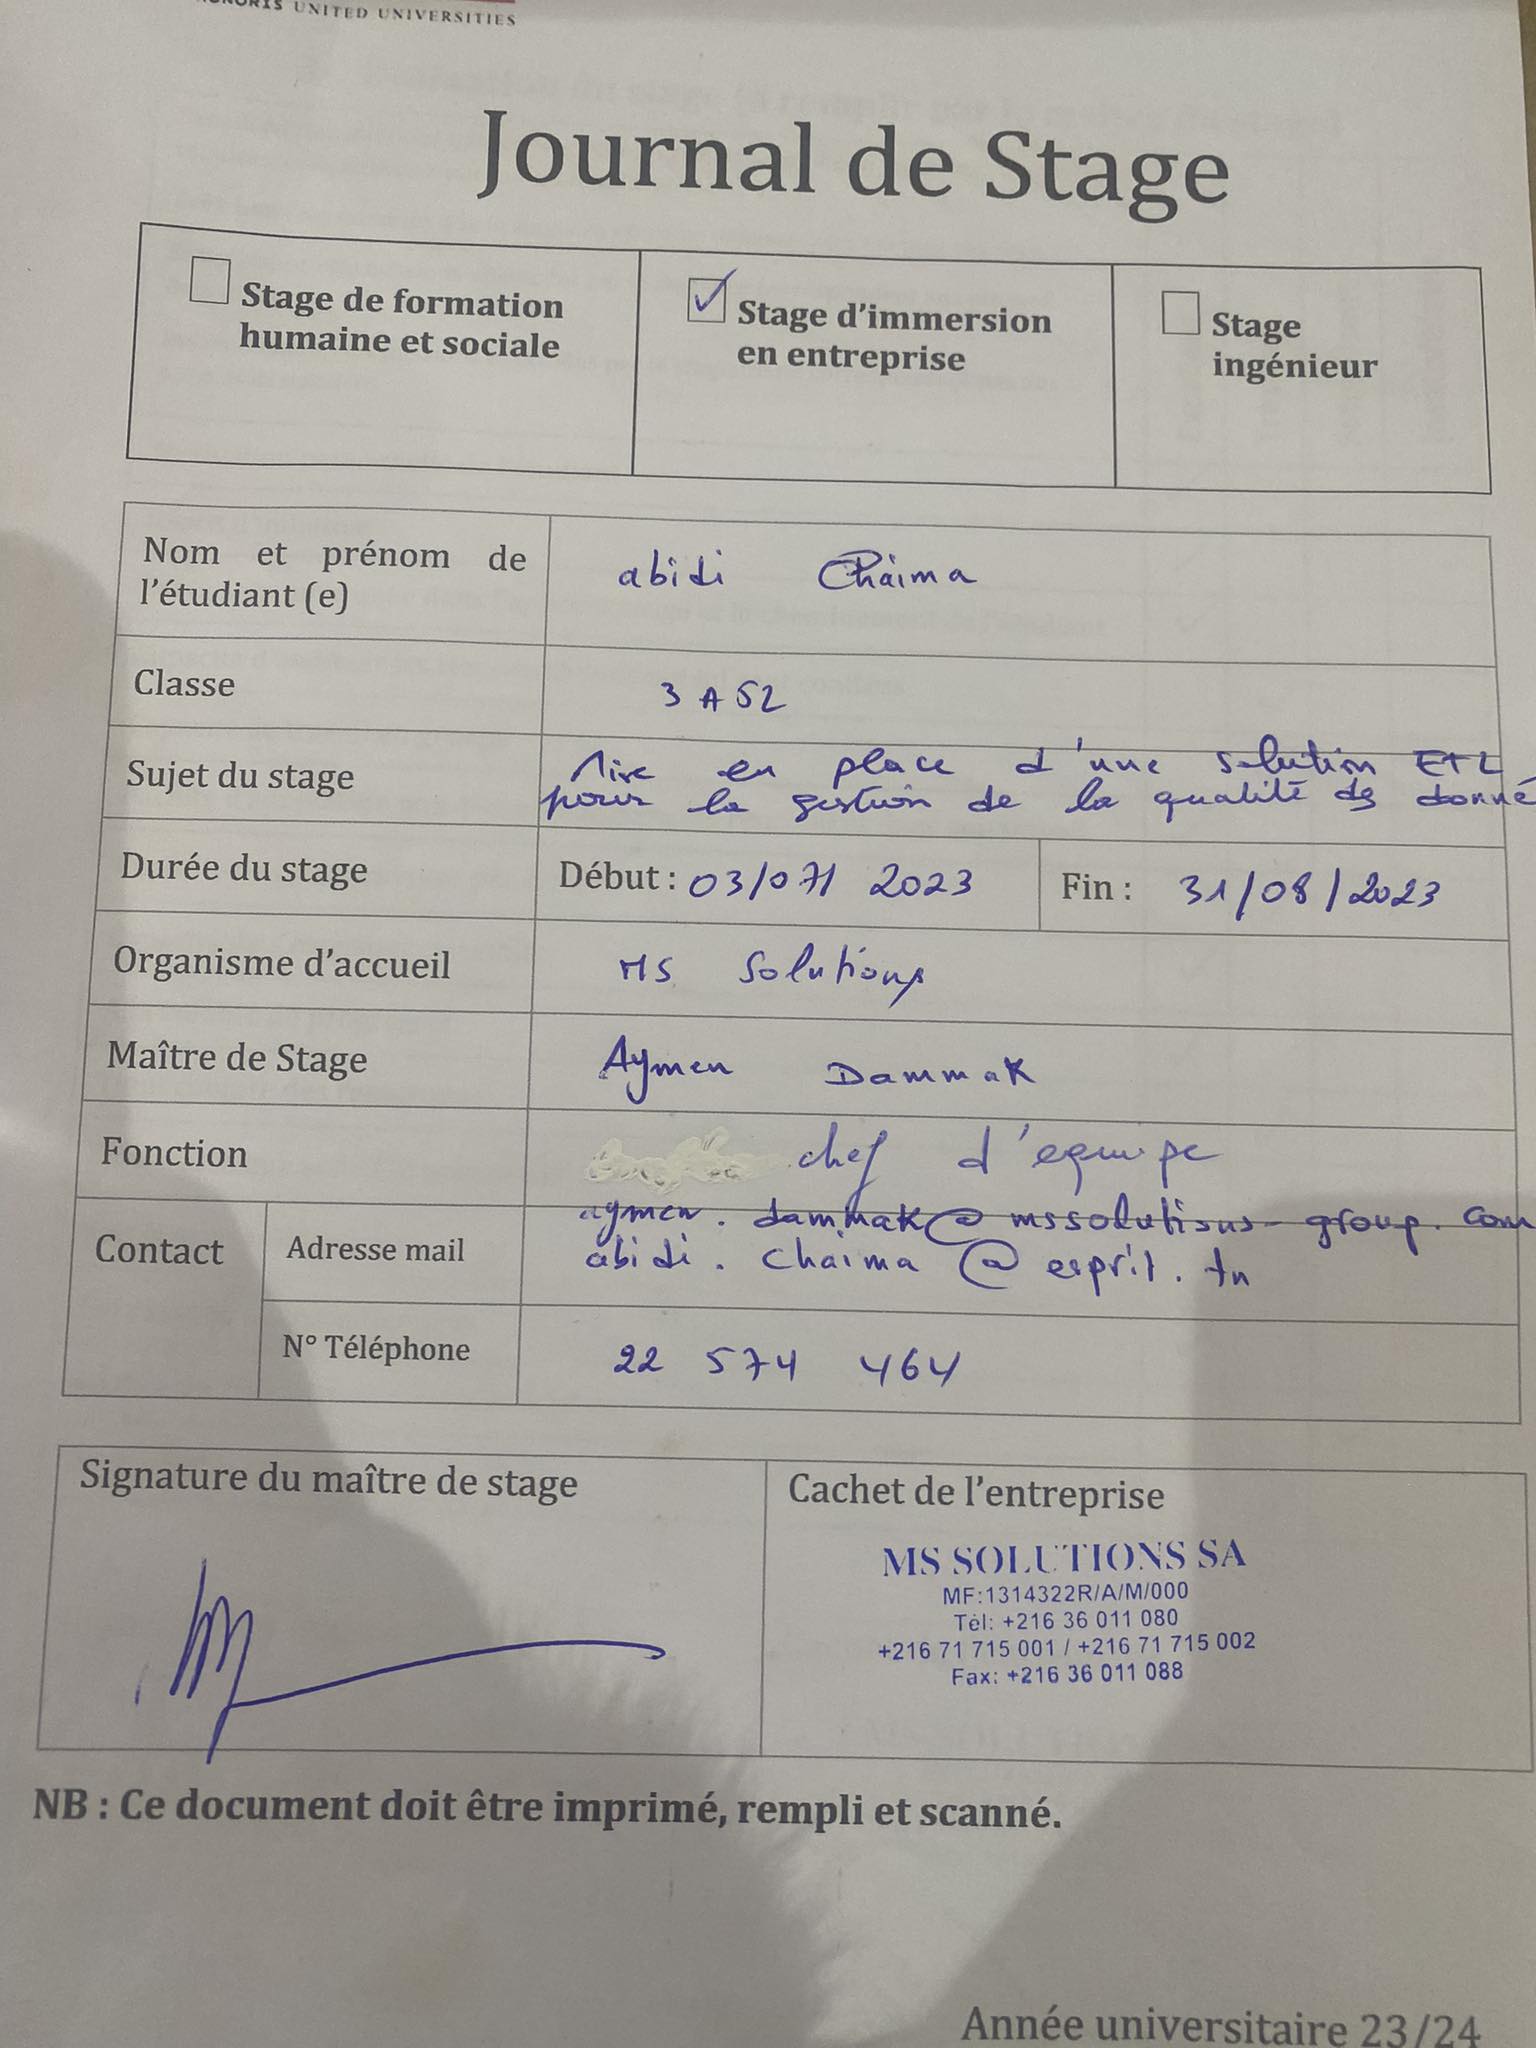 HONORIS UNITED UNIVERSITIES
Journal de Stage
Stage de formation
humaine et sociale
Stage d'immersion
en entreprise
Stage
ingénieur
Nom et prénom de
l'étudiant (e)
abidi Chaima
Classe
3 A 52
Sujet du stage
Mise en place d'une solution ETL
pour la gestion de la qualité des donné
Durée du stage
Début : 03/07/ 2023
Fin : 31/08/2023
Organisme d'accueil
MS Solutions
Maître de Stage
Aymen Dammak
Fonction
chef d'equipe
Contact
Adresse mail
aymen.dammak@mssolutions-group.com
abidi.chaima@esprit.tn
N° Téléphone
22 574 464
Signature du maître de stage
Cachet de l'entreprise
MS SOLUTIONS SA
MF:1314322R/A/M/000
Tél: +216 36 011 080
+216 71 715 001 / +216 71 715 002
Fax: +216 36 011 088
NB : Ce document doit être imprimé, rempli et scanné.
Année universitaire 23/24